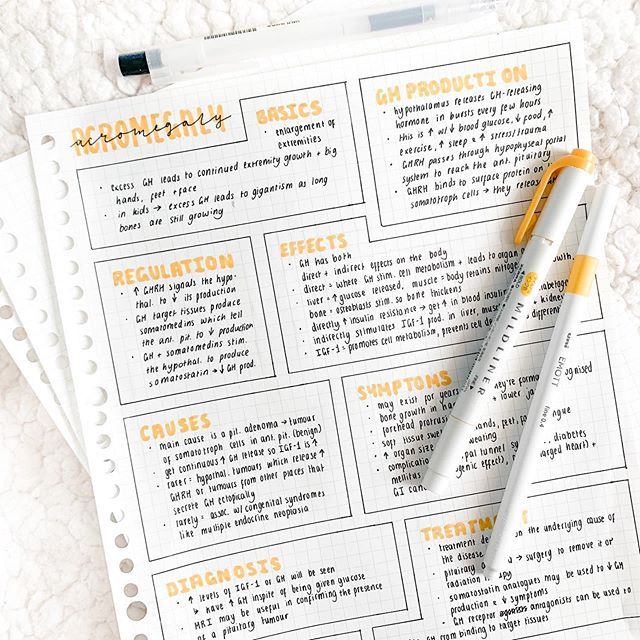 ACROMEGALY
acromegaly
BASICS
• enlargement of
extremities
• excess GH leads to continued extremity growth + big
hands, feet + face
• in kids → excess GH leads to gigantism as long
bones are still growing
GH PRODUCTION
• hypothalamus releases GH-releasing
hormone in bursts every few hours
• this is ↑ w/ ↓ blood glucose, ↓ food, ↑
exercise, ↑ sleep + ↑ stress/trauma
• GHRH passes through hypophyseal portal
system to reach the ant. pituitary
• GHRH binds to surface protein
somatotroph cells → they release
REGULATION
• ↑ GHRH signals the hypo-
thal. to ↓ its production
• GH target tissues produce
somatomedins which tell
the ant. pit. to ↓ production
• GH + somatomedins stim.
the hypothal. to produce
somarostatin → ↓ GH prod.
EFFECTS
• GH has both
direct + indirect effects on the body
• direct = where GH stim. cell metabolism + leads to organ
• liver = ↑ glucose released, muscle = body retains nitrogen
bone = osteoblasts stim. so bone thickens
• directly ↑ insulin resistance → get ↑ in blood insulin
• indirectly stimulates IGF-1 prod. in liver, muscle
• IGF-1 = promotes cell metabolism, prevents cell
CAUSES
• main cause is a pit. adenoma → tumour
of somatotroph cells in ant. pit. (benign)
• get continuous ↑ GH release so IGF-1 is ↑
• rare = hypothal. tumours which release ↑
GHRH or tumours from other places that
secrete GH ectopically
• rarely = assoc. w/ congenital syndromes
like multiple endocrine neoplasia
SYMPTOMS
• may exist for years
bone growth in
forehead protrus
• soft tissue
hands, feet,
• ↑ organ size
• complications
diabetes
mellitus
GI cancer
DIAGNOSIS
• ↑ levels of IGF-1 or GH will be seen
↳ have ↑ GH inspite of being given glucose
• MRI may be useful in confirming the presence
of a pituitary tumour
TREATMENT
• treatment on the underlying cause of
the disease
• pituitary → surgery to remove it or
radiation
• somatostatin analogues may be used to ↓ GH
production + ↓ symptoms
• GH receptor antagonists can be used to
GH from binding to target tissues
MILDLINER
uni
EMOTT
fine 0.4